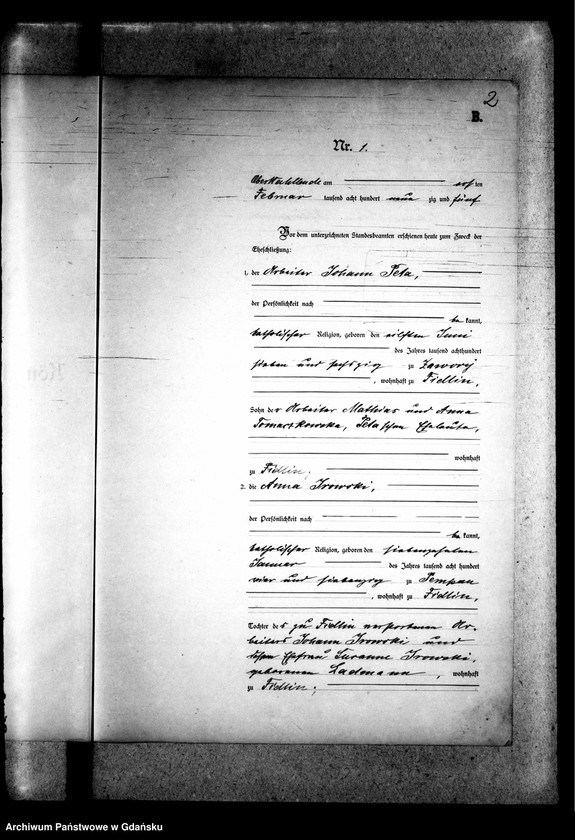 2
B.
Nr. 1.
am ersten
Februar tausend acht hundert neunzig und fünf
Vor dem unterzeichneten Standesbeamten erschienen heute zum Zweck der
Eheschließung:
1. der Arbeiter Johann Peta,
der Persönlichkeit nach
be kannt,
katholischer Religion, geboren den eilften Juni
des Jahres tausend achthundert
sieben und sechszig zu Zawory
, wohnhaft zu Fidlin,
Sohn des Arbeiter Mathias und Anna
Tomaczkowska, Peta'schen Eheleute,
wohnhaft
zu Fidlin.
2. die Anna Irowski,
der Persönlichkeit nach
be kannt,
katholischer Religion, geboren den siebenzehnten
Januar des Jahres tausend acht hundert
vier und siebenzig zu Pempau
, wohnhaft zu Fidlin,
Tochter des zu Fidlin verstorbenen Ar-
beiters Johann Irowski und
dessen Ehefrau Susanne Irowski,
geborenen Lademann, wohnhaft
zu Fidlin;
Archiwum Państwowe w Gdańsku